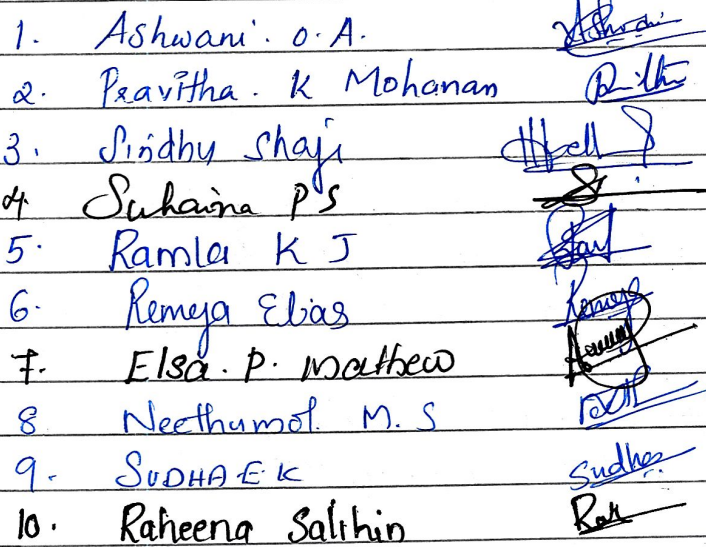 1. Ashwani. O. A. Ashwani
2. Pravitha. K Mohanan
3. Sindhu Shaji
4. Suhaina P S
5. Ramla K J
6. Remeya Elias Remeya
7. Elsa. P. Mathew
8 Neethumol. M. S
9. SUDHA E K Sudha
10. Raheena Salihin